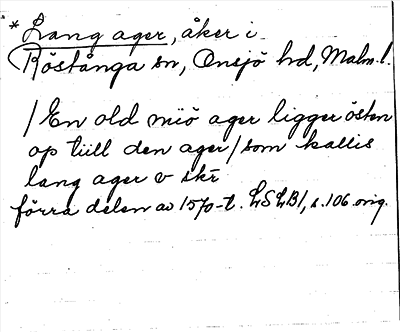 * Lang ager, åker i
Röstånga sn, Onsjö hd, Malm. l.
/ En old miö ager ligger östen
op tiill den ager / som kallis
lang ager v skr
förra delen av 1570-t. LSLB1, s. 106 orig.